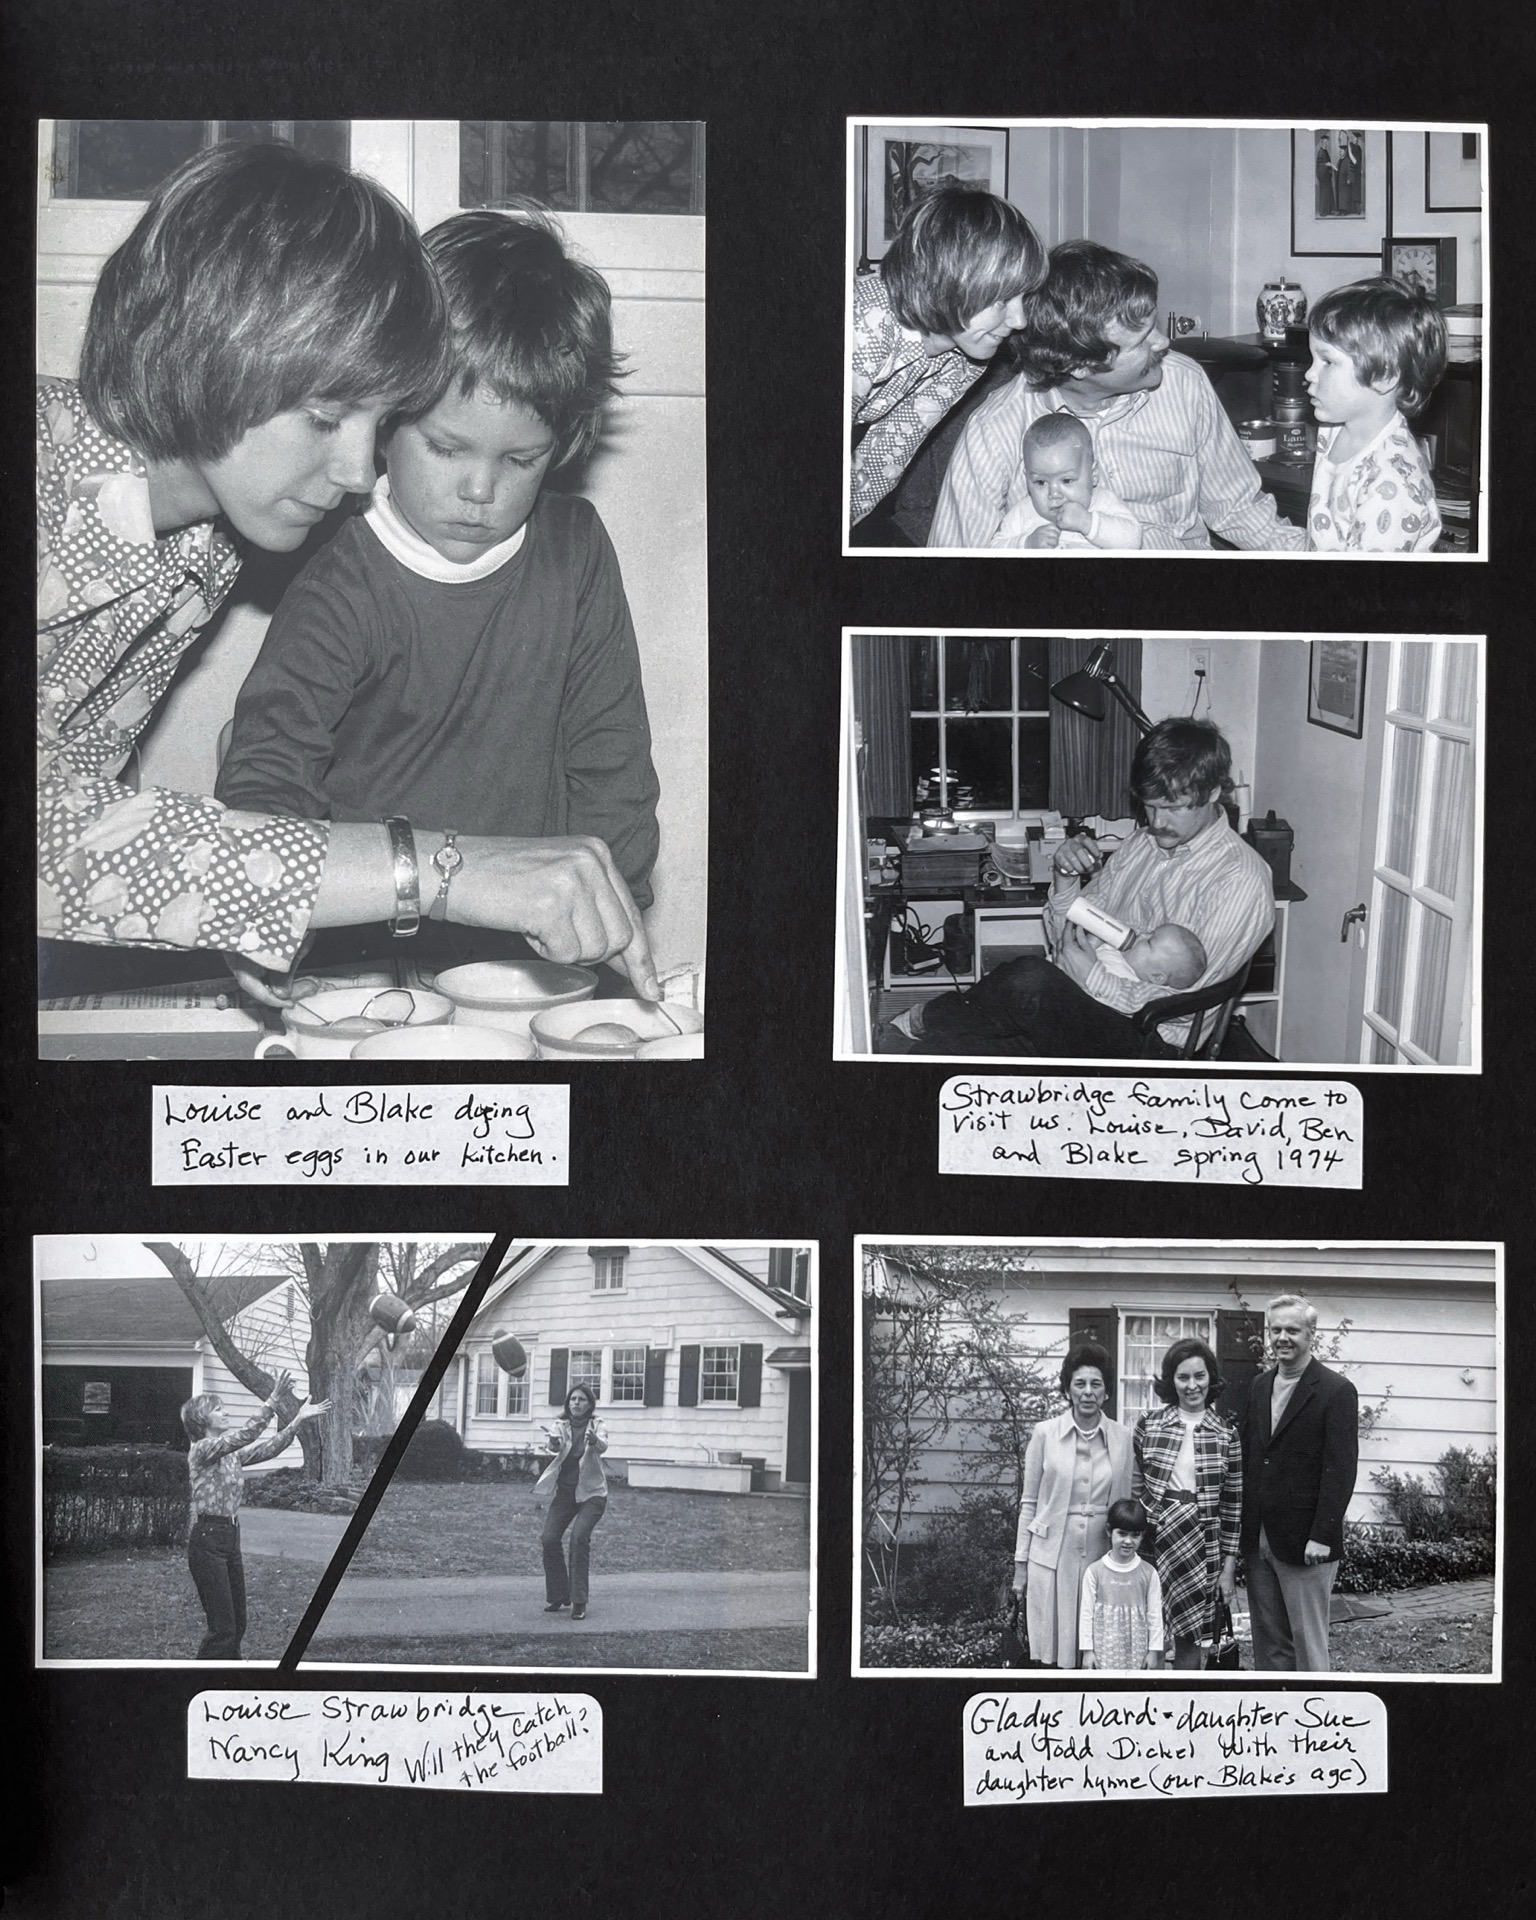 Louise and Blake dyeing
Easter eggs in our kitchen.
Strawbridge family come to
visit us. Louise, David, Ben
and Blake spring 1974
Louise Strawbridge
Nancy King Will they catch
the football?
Gladys Ward - daughter Sue
and Todd Dickel with their
daughter Lynne (our Blake's age)
Lane